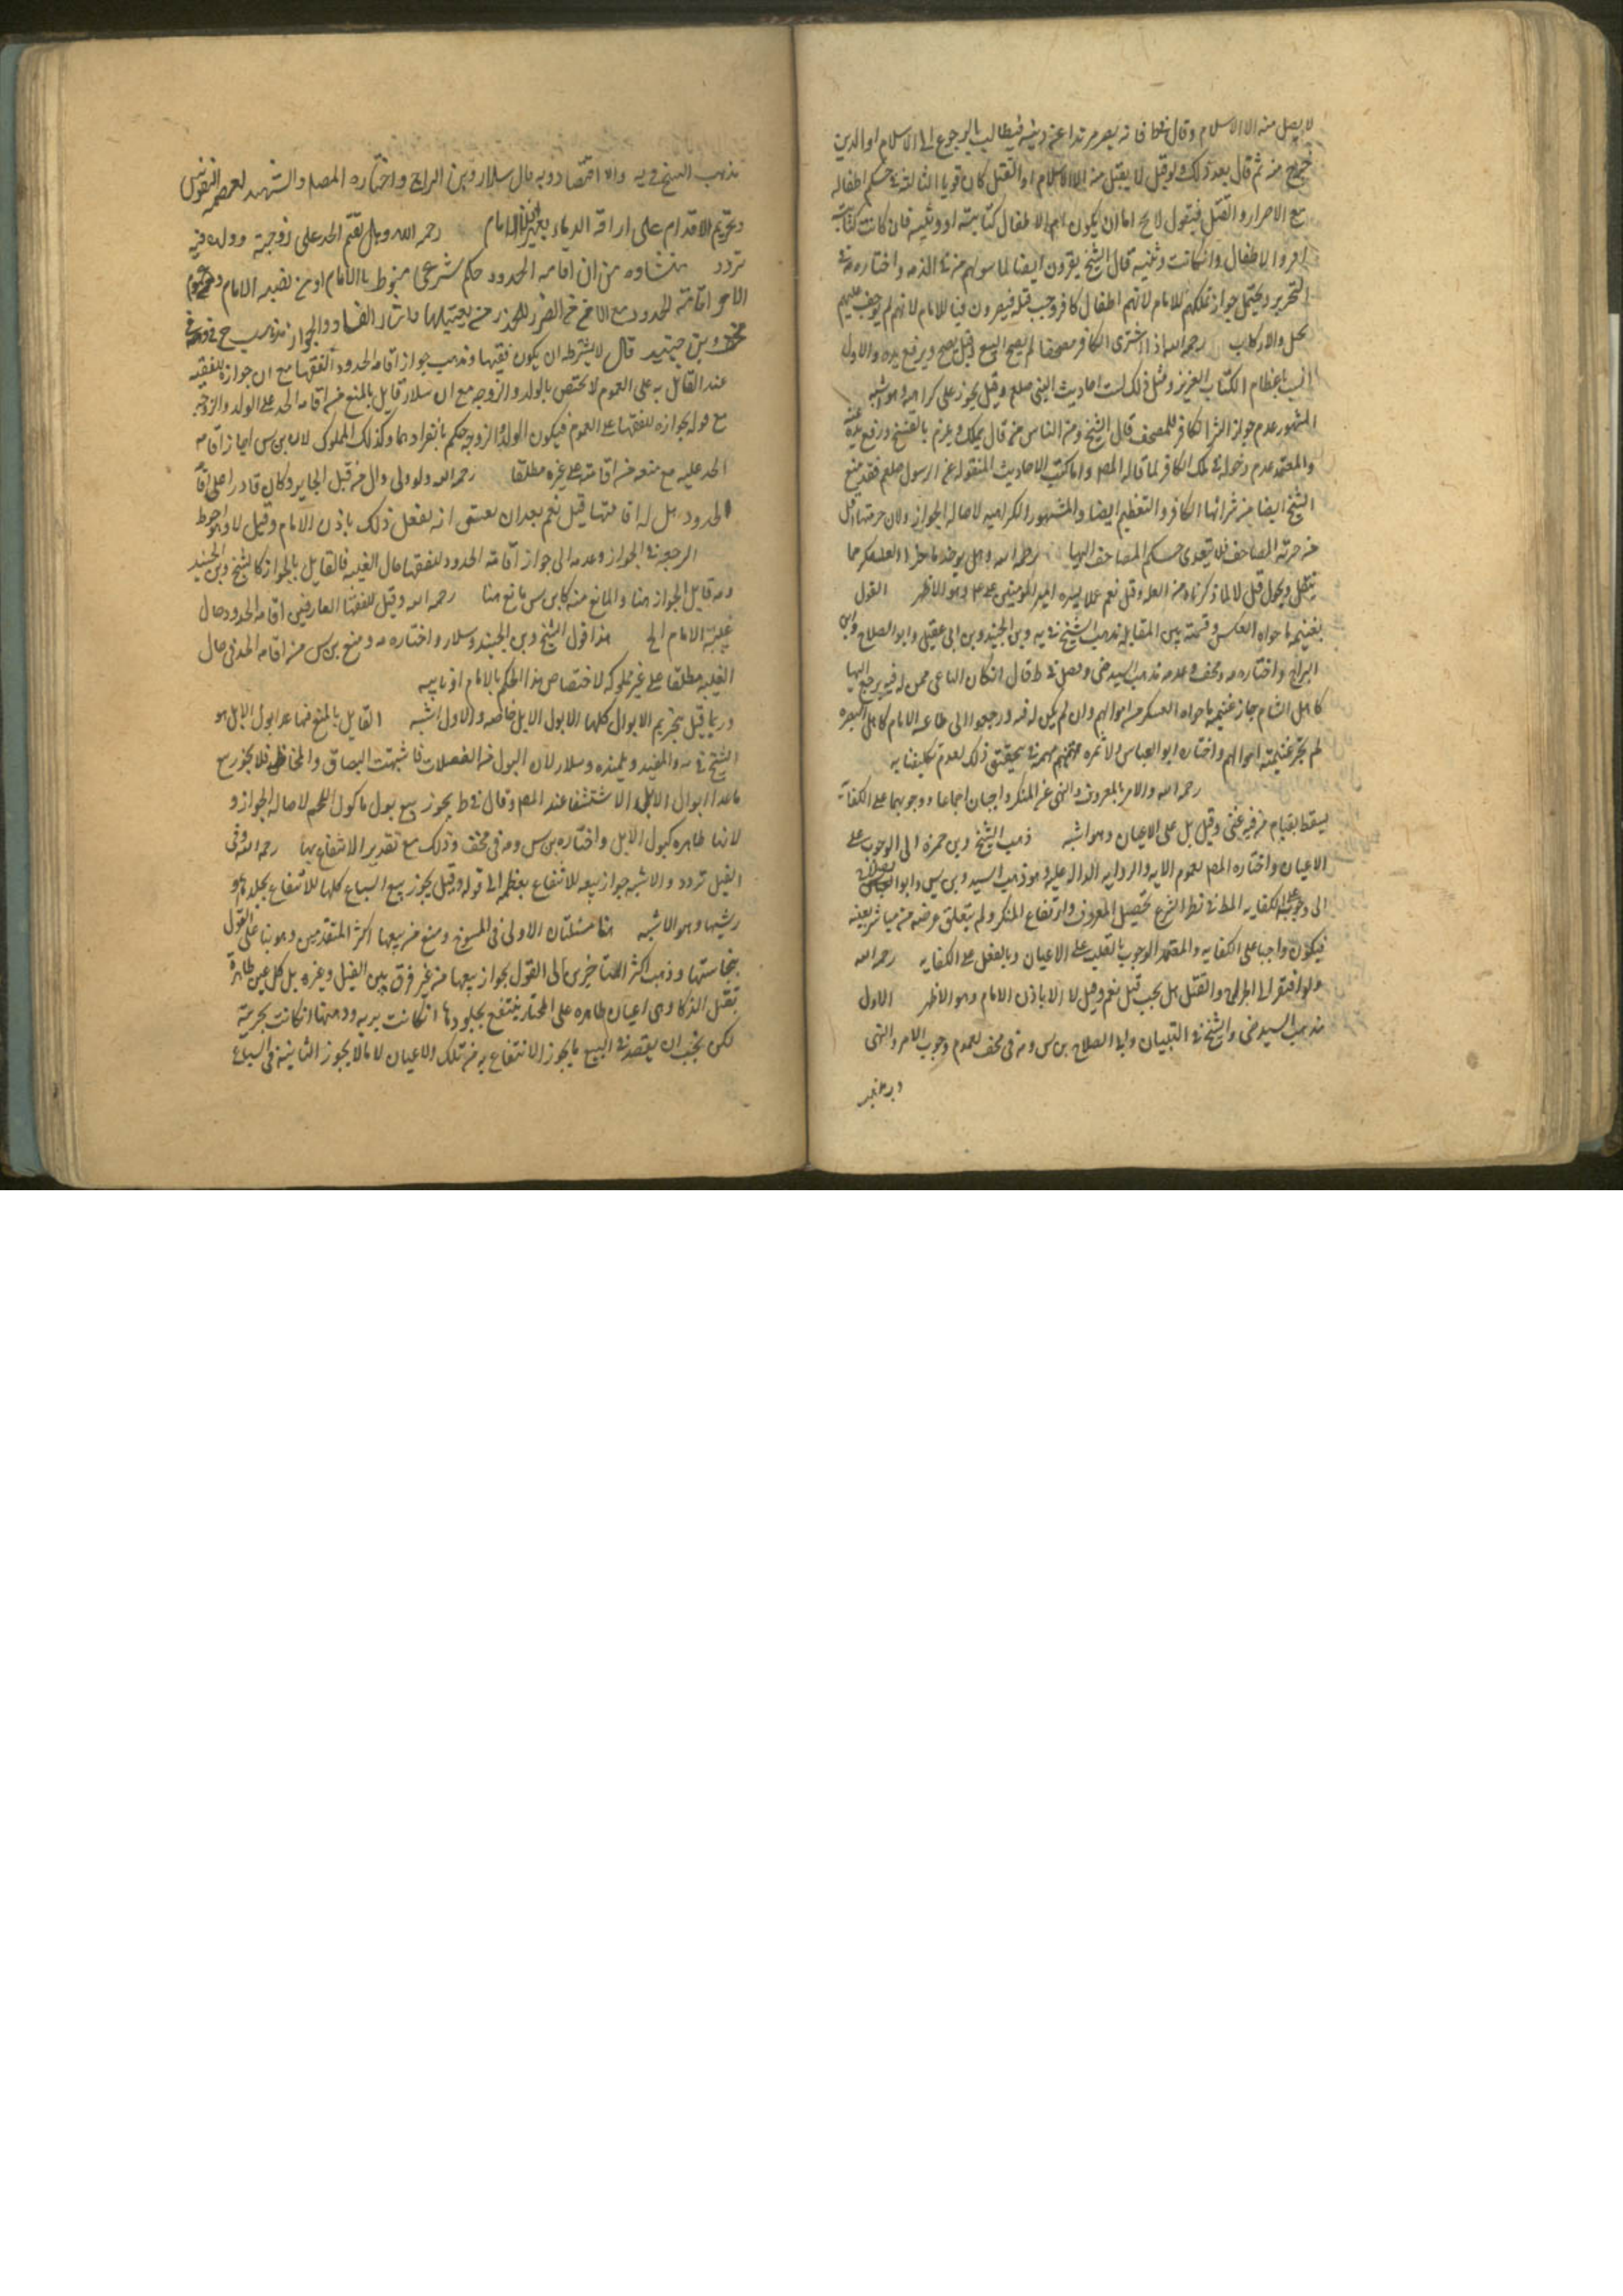 لا يقبل منه الا الاسلام وقال فى ط فانه يصير مرتدا عن دينه فيطالب بالرجوع الى الاسلام او الدين
خرج منه ثم قال بعد ذلك ولو قيل لا يقبل منه الا الاسلام او القتل كان قويا الثالثة فى حكم اطفاله
مع الاصرار والقتل فيقول لا يخ اما ان يكون ام الاطفال كتابية او وثنية فان كانت كتابية
اقروا الاطفال وان كانت وثنية قال الشيخ يقرون ايضا لما سبق لهم من الذمه واختاره فى
التحرير ويحتمل جواز تملكهم للامام لانهم اطفال كافر وجب قتله فيصيرون فيئا للامام لانهم لم يوجف عليهم
بخيل ولا ركاب رحمه الله اذا اشترى الكافر مصحفا لم يصح البيع وقيل يصح ويرفع يده والاول
انسب باعظام الكتاب العزيز ومثل ذلك كتب احاديث النبى صلعم وقيل يجوز على كراهه وهو اشبه
المشهور عدم جواز شرا الكافر للمصحف قال الشيخ ومن الناس من قال يملك ويلزم بالفسخ ورفع يده عنه
والمعتمد عدم دخوله فى ملك الكافر لما قاله المص واما كتب الاحاديث المنقوله عن الرسول صلعم فقد منع
الشيخ ايضا من شرائها الكافر والتعظيم ايضا والمشهور الكراهيه لاصاله الجواز ولان حرمتها اقل
من حرمة المصاحف فلا يتعدى حكم المصاحف اليها رحمه الله وهل يوخذ ما حواه العسكر مما
ينقل ويحول قيل لا لما ذكرناه من العله وقيل نعم عملا بسيره امير المومنين على علم وهو الاظهر القول
بغنيمه ما حواه العسكر وقسمته بين المقاتله مذهب الشيخ فى يه وبن الجنيد وبن ابى عقيل وابو الصلاح وابن
البراج واختاره مه فى مخف وعدمه مذهب السيد رضى وفصل فى ط قال ان كان الباغى ممن له فئه يرجع اليها
كاهل الشام جاز غنيمه ما حواه العسكر من اموالهم وان لم يكن له فئه ورجعوا الى طاعه الامام كاهل البصره
لم يجز غنيمته اموالهم واختاره ابو العباس ولا ثمره مهمة فى تحقيق ذلك لعدم تكليفنا به
رحمه الله والامر بالمعروف والنهى عن المنكر واجبان اجماعا ووجوبهما على الكفاية
يسقط بقيام من فيه غنى وقيل بل على الاعيان وهو اشبه ذهب الشيخ وبن حمزه الى الوجوب على
الاعيان واختاره المص لعموم الايه والروايه الداله عليه وهو ذهب السيد وبن س وابو الصلاح
الى وجوبه على الكفايه المط فى نظر الشرع تحصيل المعروف وارتفاع المنكر ولم يتعلق غرضه من مباشر بعينه
فيكون واجبا على الكفايه والمعتمد الوجوب بالقلب على الاعيان وبالفعل على الكفايه رحمه الله
ولو افتقر الى الجراح والقتل هل يجب قيل نعم وقيل لا الا باذن الامام وهو الاظهر الاول
مذهب السيد رضى والشيخ فى التبيان وابى الصلاح بن س ومه فى مخف لعموم وجوب الامر والنهى
مذهب الشيخ فى يه والاقتصاد وبه قال سلار وبن البراج واختاره المص والشهيد لعصمه النفوس
وتحريم الاقدام على اراقة الدماء بغير اذن الامام رحمه الله وهل يقيم الحد على زوجته وولده فيه
تردد منشاوه من ان اقامه الحدود حكم شرعى منوط بالامام او من نصبه الامام
عند القايل به على العموم لا يختص بالولد والزوجه مع ان سلار قايل بالمنع من اقامه الحد على الولد والزوجه
مع قوله بجوازه للفقها على العموم فيكون الولد والزوجه حكم بانفرادهما وكذلك المملوك لان بن س اجاز اقامه
الحد عليه مع منعه من اقامته على غيره مطلقا رحمه الله ولو ولى وال من قبل الجاير وكان قادرا على اقامة
الحدود هل له اقامتها قيل نعم بعد ان يعتقد انه يفعل ذلك باذن الامام وقيل لا وهو احوط
المرجع فى الجواز وعدمه الى جواز اقامة الحدود للفقها حال الغيبه فالقايل بالجواز كالشيخ وبن الجنيد
ومه قايل بالجواز هنا والمانع منه كابن س مانع هنا رحمه الله وقيل للفقها العارفين اقامه الحدود حال
غيبة الامام الخ هذا قول الشيخ وبن الجنيد وسلار واختاره مه ومنع بن س من اقامه الحد فى حال
الغيبه مطلقا على غير مملوكه لاختصاص هذا الحكم بالامام او نايبه
وربما قيل بتحريم الابوال كلها الا بول الابل خاصه والاول اشبه القايل بالمنع فيما عدا بول الابل هو
الشيخ فى يه والمفيد وتلميذه وسلار لان البول من الفضلات فاشبهت البصاق والمخاط فلا يجوز بيع
ماعدا ابوال الابل الا للاستشفا عند المص وقال فى ط يجوز بيع بول ماكول اللحم لاصاله الجواز و
لانها طاهره كبول الابل واختاره بن س ومه فى مخف وذلك مع تقدير الانتفاع بها رحمه الله وفى
الفيل تردد والاشبه جواز بيعه للانتفاع بعظمه الى قوله وقيل يجوز بيع السباع كلها للانتفاع بجلدها او
ريشها وهو الاشبه هنا مسئلتان الاولى فى المسوخ ومنع من بيعها اكثر المتقدمين وهو بنا على القول
بنجاستها وذهب اكثر المتاخرين الى القول بجواز بيعها من غير فرق بين الفيل وغيره بل كل عين طاهرة
تقبل الذكاة وهى اعيان طاهره على المختار ينتفع بجلودها ان كانت بريه ودهنها ان كانت بحرية
لكن يجب ان يقصد فى البيع ما يجوز الانتفاع به من تلك الاعيان لا ما لا يجوز الثانية فى السباع